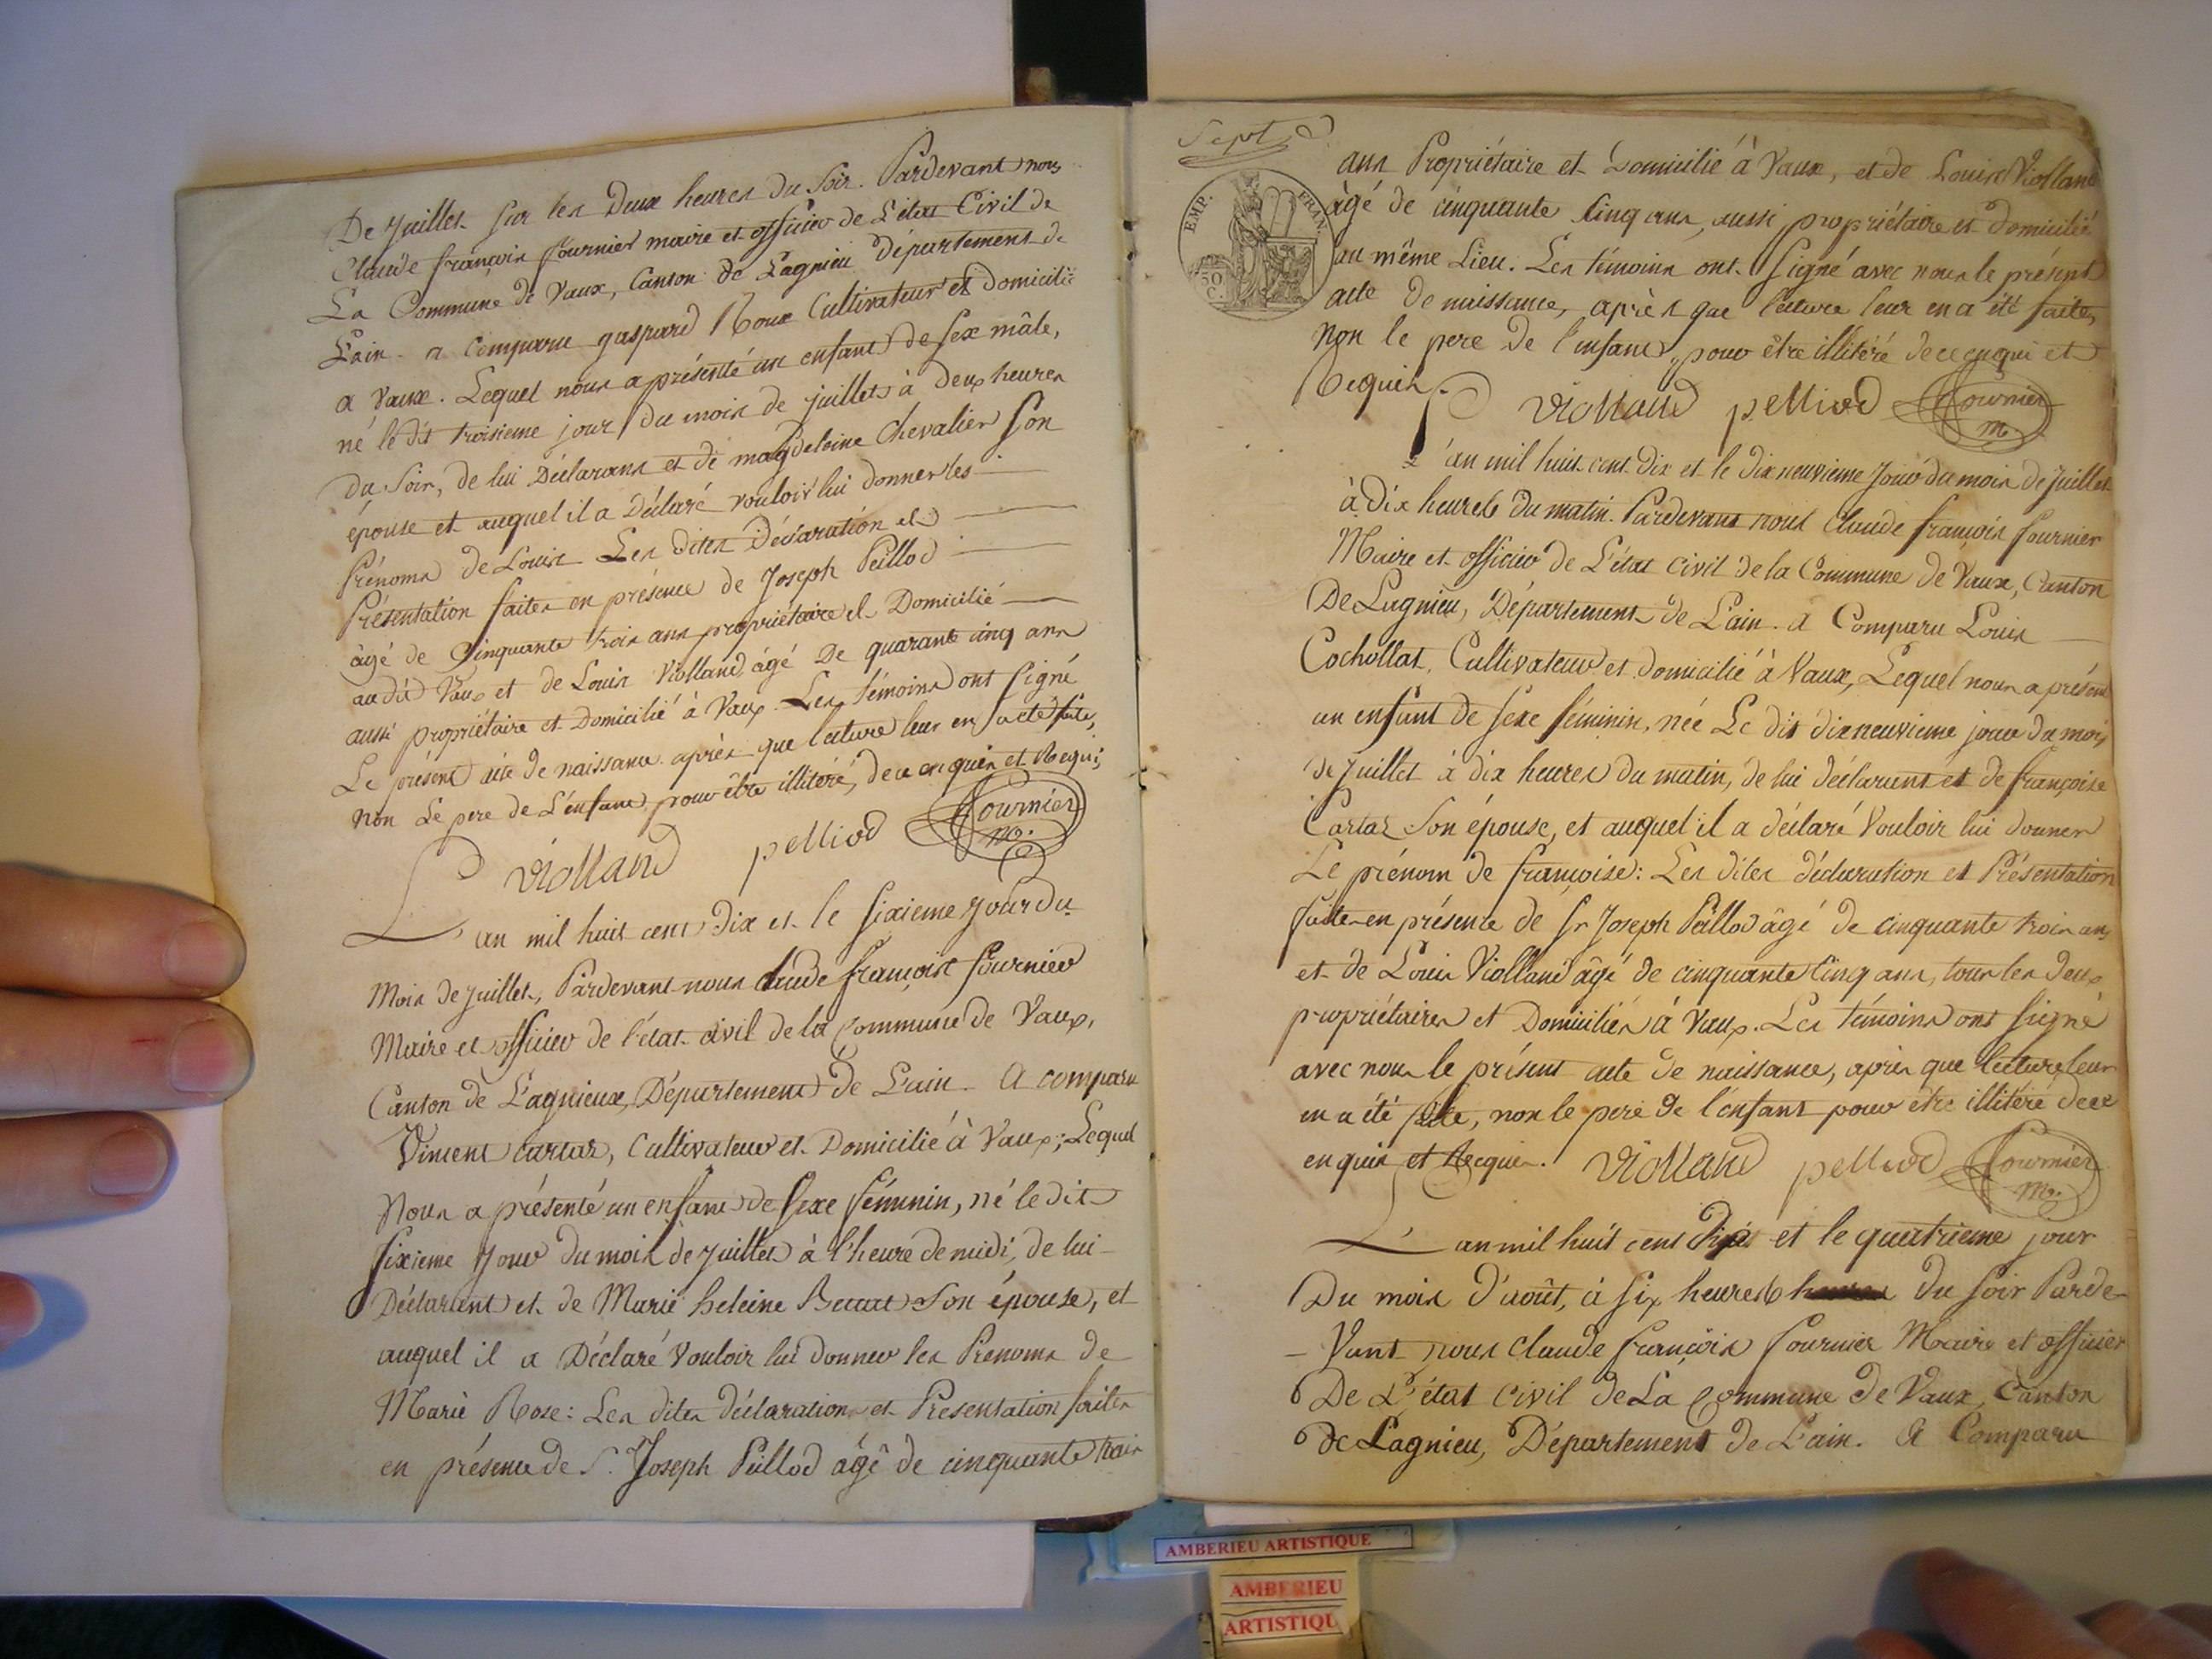 De Juillet sur les Deux heures du Soir. Pardevant nous
Claude françois fournier maire et officier de L'état Civil de
La Commune de Vaux, Canton de Lagnieu Département de
L'ain. a Comparu gaspard Roux Cultivateur et domicilié
a Vaux. Lequel nous a présenté un enfant de sex mâle,
né le dit troisieme jour du mois de juillet à deux heures
du Soir, de lui Déclarant et de magdeleine Chevalier Son
épouse et auquel il a Déclaré vouloir lui donner les
Prénoms de Louis Les dites Déclaration et
Présentation faites en présence de Joseph Peillod
âgé de Cinquante trois ans propriétaire et Domicilié
au dit Vaux et de Louis Violland âgé De quarante cinq ans
aussi propriétaire et Domicilié à Vaux. Les témoins ont signé
Le présent acte de naissance après que lecture leur en a eté faite,
non Le pere de L'enfant pour être illitéré, de ce enquis et Requis
violland pelliod fournier
m.
L'an mil huit cent Dix et le sixieme Jour du
Mois de juillet, Pardevant nous Claude françois fournier
Maire et officier de l'état civil de la Commune de Vaux,
Canton de Lagnieux, Département de L'ain. A comparu
Vincent cartaz, Cultivateur et Domicilié à Vaux; Lequel
Nous a présenté un enfant de sexe féminin, né le dit
sixieme Jour du mois de juillet à l'heure de midi, de lui
Déclarent et de Marie heleine son épouse, et
auquel il a Déclaré Vouloir lui donner les Prenoms de
Marie Rose: Les dites déclarations et Présentation faites
en présence de S. Joseph Peillod âgé de cinquante trois
Sept
EMP. FRAN.
50
C.
ans Propriétaire et Domicilié à Vaux, et de Louis Violland
âgé de cinquante Cinq ans, aussi propriétaire et domicilié
au même Lieu. Les témoins ont signé avec nous le présent
acte De naissance, après que lecture leur en a été faite,
Non le pere De l'enfant, pour être illitéré de ce enqui et
Requis.
violland pelliod fournier
m
L'an mil huit cent Dix et le Dix neuvieme Jour du mois de juillet
à Dix heures Du matin. Pardevant nous Claude françois fournier
Maire et officier de L'état civil de la Commune de Vaux, Canton
De Lagnieu, Département de L'ain. a Comparu Louis
Cochollat, Cultivateur et domicilié à Vaux, Lequel nous a présenté
un enfant de sexe féminin, née Le dit dix neuvieme jour du mois
de Juillet à dix heures du matin, de lui déclarent et de françoise
Cartaz Son épouse, et auquel il a déclaré Vouloir lui donner
Le prénom de françoise: Les dites déclaration et Présentation
faite en présence de Sr Joseph Peillod âgé de cinquante trois ans
et de Louis Violland âgé de cinquante Cinq ans, tous les deux
propriétaires et Domiciliés à Vaux. Les témoins ont signé
avec nous le présent acte de naissance, après que lecture leur
en a été faite, non le pere de l'enfant pour être illitéré de ce
enquis et Requis. violland pelliod fournier
m.
L'an mil huit cent Dix et le quatrieme jour
Du mois d'août, à six heures du soir Parde-
-Vant nous Claude françois fournier Maire et officier
De L'état Civil de La Commune de Vaux, Canton
de Lagnieu, Département de L'ain. A Comparu
AMBERIEU ARTISTIQUE
AMBERIEU
ARTISTIQU